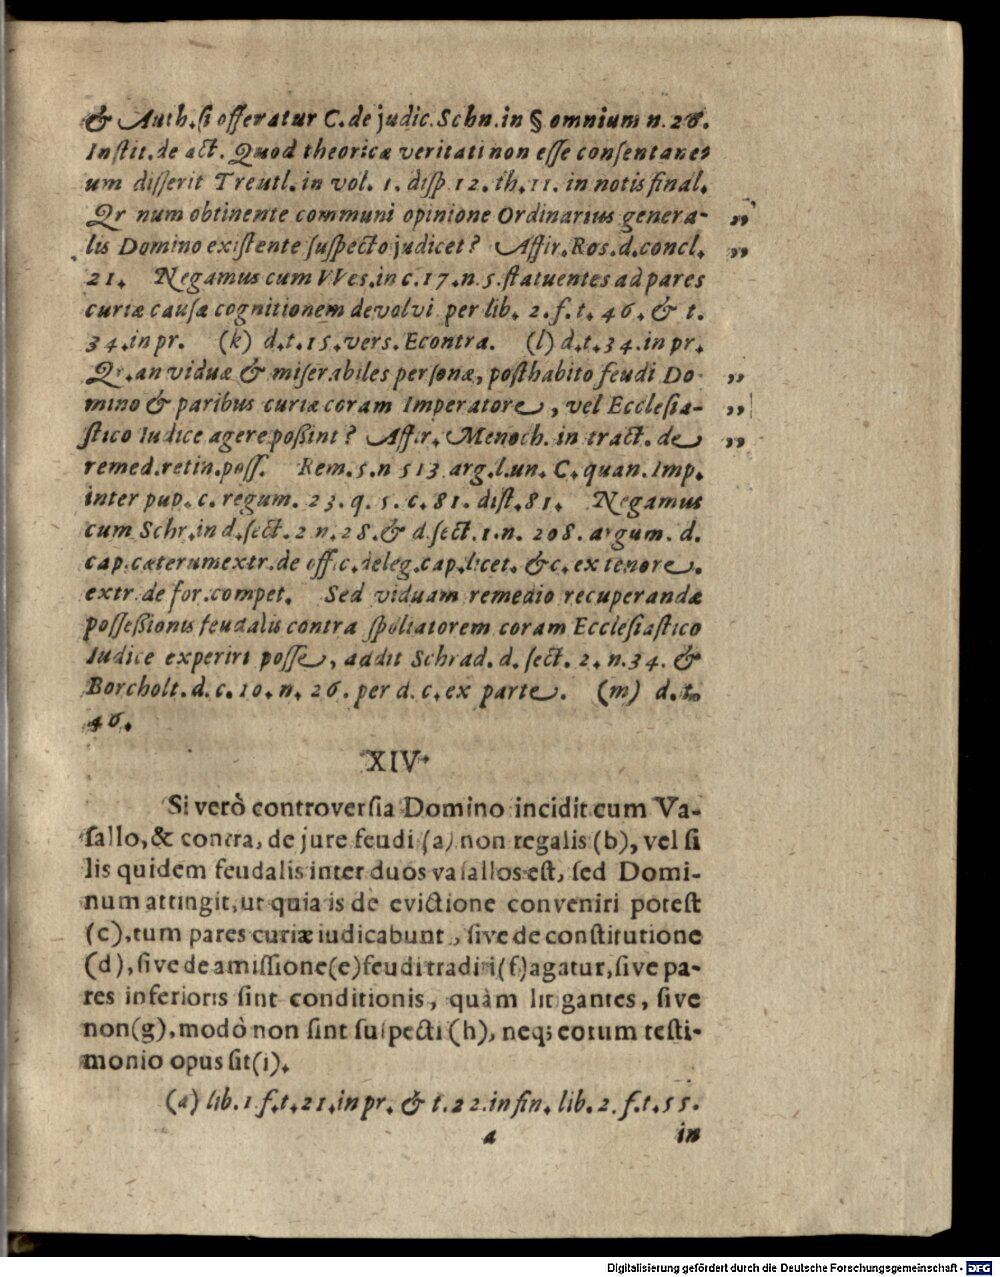 & Auth. si offeratur C. de judic. Schn. in § omnium n. 26.
Instit. de act. Quod theoricæ veritati non esse consentane-
um disserit Treutl. in vol. 1. disp. 12. th. 11. in notis final.
Qr num obtinente communi opinione Ordinarius genera- „
lis Domino existente suspecto judicet? Affir. Ros. d. concl. „
21. Negamus cum VVes. in c. 17. n. 5. statuentes ad pares
curiæ causæ cognitionem devolvi per lib. 2. f. t. 46. & t.
34. in pr. (k) d. t. 15. vers. Econtra. (l) d. t. 34. in pr.
Qr. an viduæ & miserabiles personæ, posthabito feudi Do- „
mino & paribus curiæ coram Imperatore, vel Ecclesia- „
stico Iudice agere poßint? Affir. Menoch. in tract. de „
remed. retin. poss. Rem. 5. n 513 arg. l. un. C. quan. Imp.
inter pup. c. regum. 23. q. 5. c. 81. dist. 81. Negamus
cum Schr. in d. sect. 2 n. 28. & d. sect. 1. n. 208. argum. d.
cap. cæterum extr. de offic. deleg. cap. licet. & c. ex tenore.
extr. de for. compet. Sed viduam remedio recuperandæ
posseßionis feudalis contra spoliatorem coram Ecclesiastico
Iudice experiri posse, addit Schrad. d. sect. 2. n. 34. &
Borcholt. d. c. 10. n. 26. per d. c. ex parte. (m) d. t.
46.
XIV.
Si verò controversia Domino incidit cum Va-
sallo, & contra, de jure feudi (a) non regalis (b), vel si
lis quidem feudalis inter duos vasallos est, sed Domi-
num attingit, ut quia is de evictione conveniri potest
(c), tum pares curiæ iudicabunt, sive de constitutione
(d), sive de amissione (e) feudi traditi (f) agatur, sive pa-
res inferioris sint conditionis, quàm litigantes, sive
non (g), modò non sint suspecti (h), neq; eorum testi-
monio opus sit (i).
(a) lib. 1. f. t. 21. in pr. & t. 22. in fin. lib. 2. f. t. 55.
a in
Digitalisierung gefördert durch die Deutsche Forschungsgemeinschaft - DFG